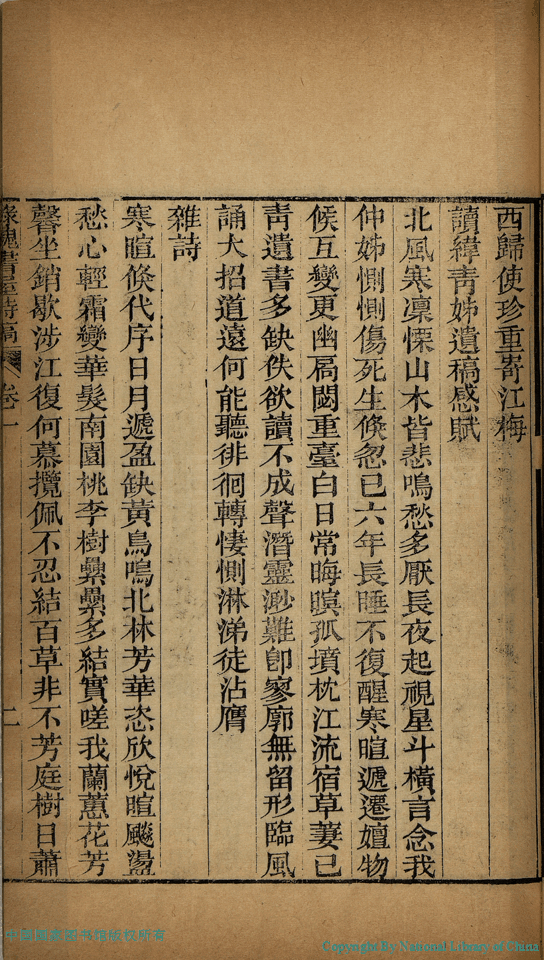 西歸使珍重寄江梅
讀緯青姊遺稿感賦
北風寒凛慄山木皆悲鳴愁多厭長夜起視星斗橫言念我
仲姊惻惻傷死生倏忽已六年長睡不復醒寒暄遞遷嬗物
候互變更幽扃閟重臺白日常晦暝孤墳枕江流宿草萋已
靑遺書多缺佚欲讀不成聲潛靈渺難卽寥廓無留形臨風
誦大招道遠何能聽徘徊轉悽惻淋涕徒沾膺
雜詩
寒暄倏代序日月遞盈缺黃鳥鳴北林芳華恣欣悅暄飈盪
愁心輕霜變華髮南園桃李樹纍纍多結實嗟我蘭蕙花芳
馨坐銷歇涉江復何慕攬佩不忍結百草非不芳庭樹日蕭
綠槐書室詩稿 卷一 二
中国国家图书馆版权所有
Copyright By National Library of China